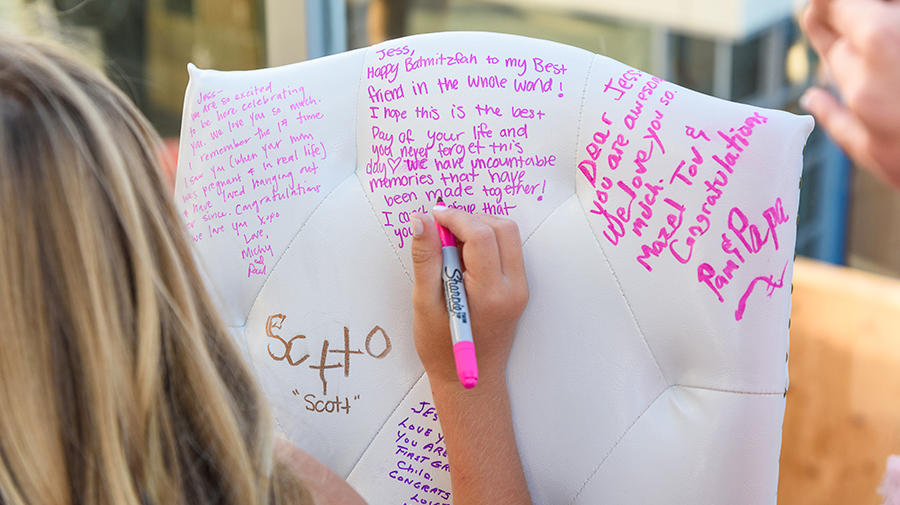 Jess-
we are so excited
to be here celebrating
you. We love you so much.
I remember the 1st time
I saw you (when your mum
was pregnant & in real life)
& have loved hanging out
ever since. Congratulations
we love you xoxo
Love,
Micky
and
Paul
Jess,
Happy Batmitzfah to my Best
friend in the whole world!
I hope this is the best
Day of your life and
you never forget this
day♡ We have uncountable
memories that have
been made together!
I can that
you
Dear Jess,
you are awesome
We love you so
much.
Mazel Tov &
Congratulations
Pam & Papa
ScttO
"Scott"
Sharpie
JES
LOVE Y
YOU ARE
FIRST GR
Child.
CONGRATS